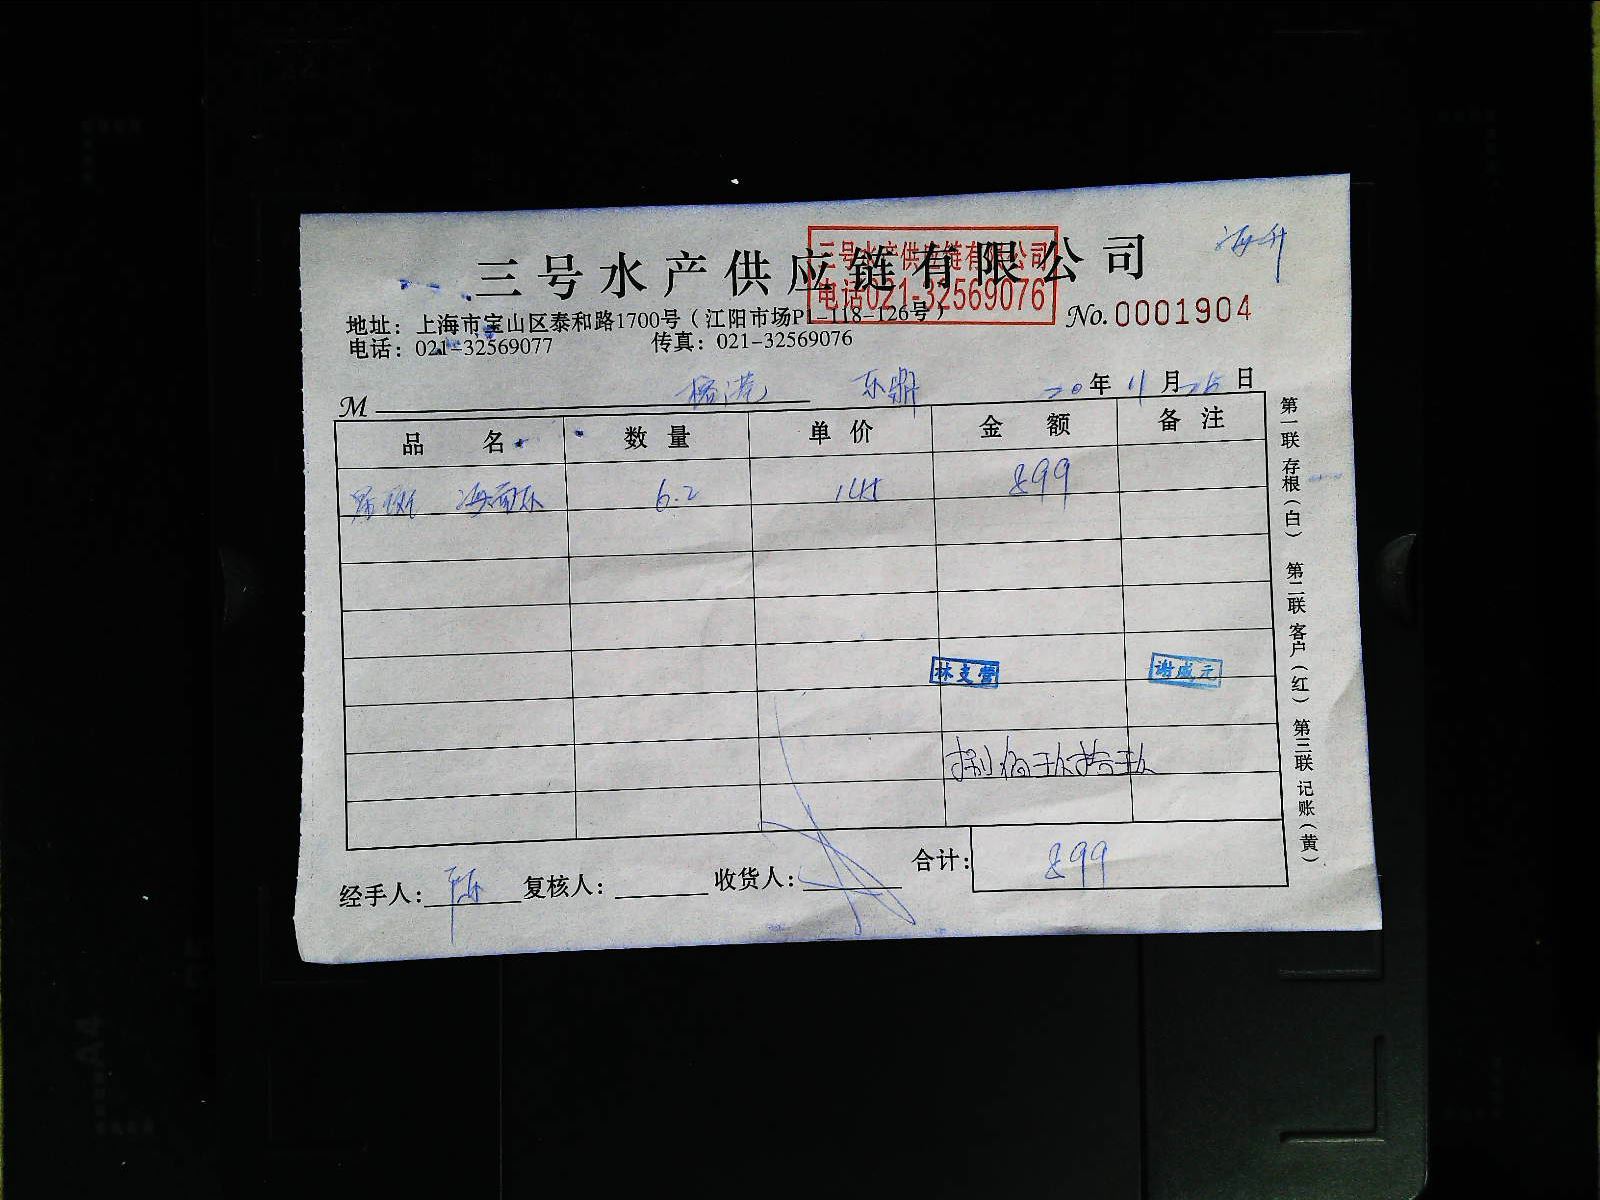 三号水产供应链有限公司
三号水产供应链有限公司
电话021-32569076
海升
地址：上海市宝山区泰和路1700号（江阳市场P1-118-126号）
No.0001904
电话：021-32569077 传真：021-32569076
M 东鼎 20年11月25日
品名 数量 单价 金额 备注
东 6.2 145 899
林支营 谢成元
捌佰玖拾玖
合计：899
经手人： 复核人： 收货人：
第一联 存根（白） 第二联 客户（红） 第三联 记账（黄）